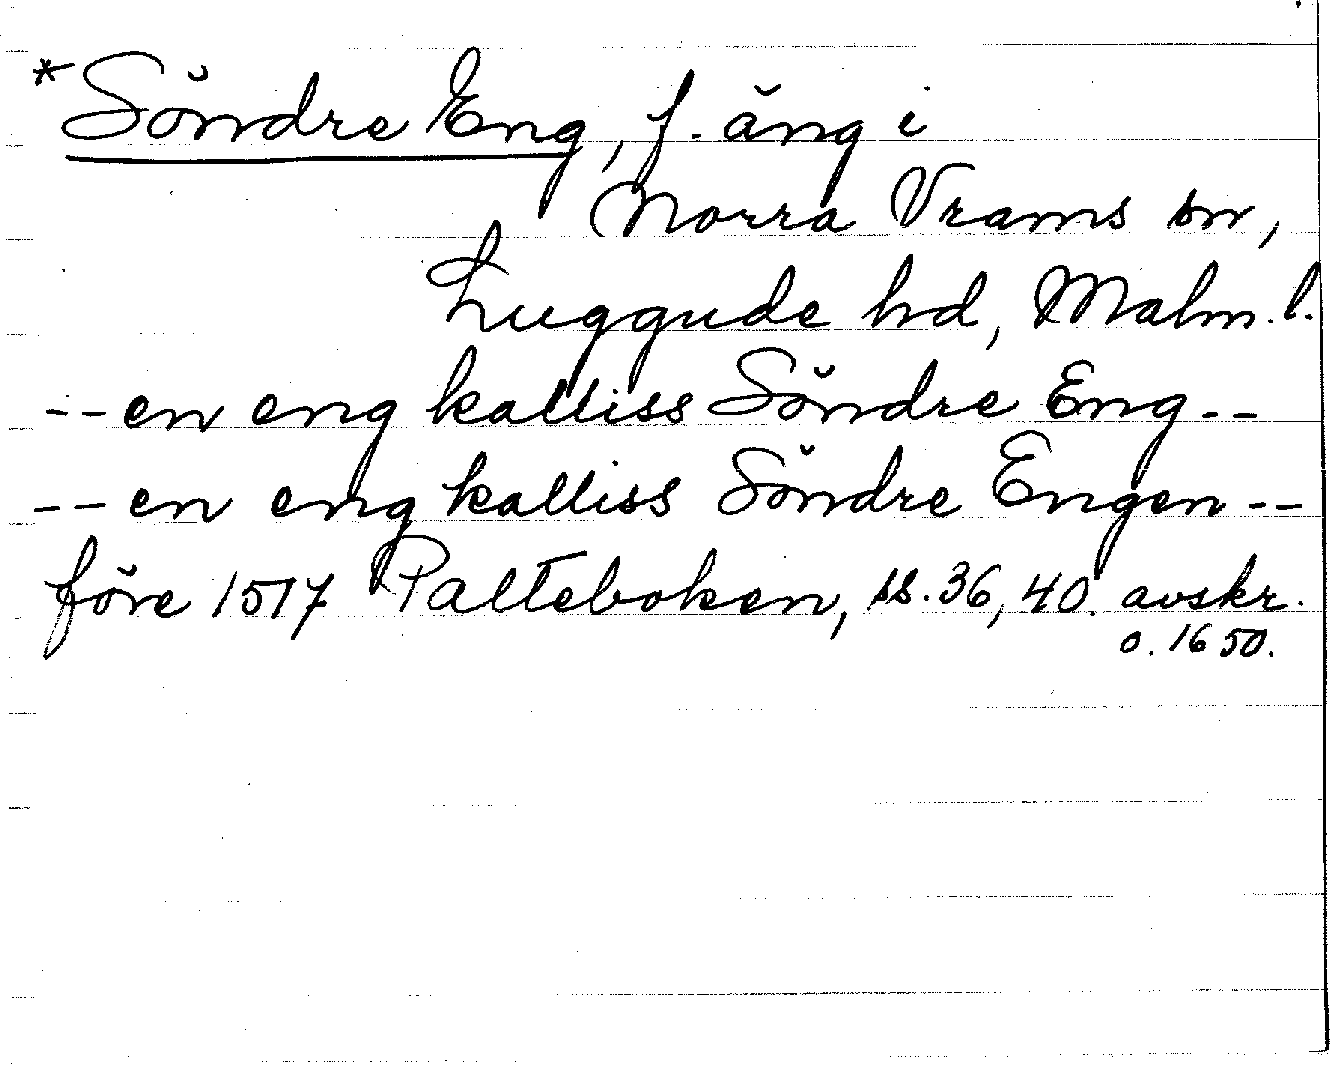 *Söndre Eng, f. äng i
Norra Vrams sn,
Luggude hd, Malm. l.
--en eng kalliss Söndre Eng--
--en eng kalliss Söndre Engen--
före 1517 Palteboken, ss. 36, 40. avskr.
o. 1650.